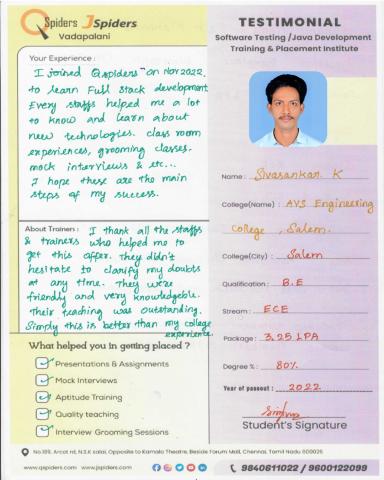 QSpiders JSpiders
Vadapalani
Your Experience :
I joined Qspiders on Nov 2022.
to learn Full Stack development
Every staffs helped me a lot
to know and learn about
new technologies. class room
experiences, grooming classes.
mock interviews & etc...
I hope these are the main
steps of my success.
About Trainers : I thank all the staffs
& trainers who helped me to
get this offer. They didn't
hesitate to clarify my doubts
at any time. They were
friendly and very knowledgeble.
Their teaching was outstanding.
Simply this is better than my college
experience.
What helped you in getting placed ?
Presentations & Assignments
Mock Interviews
Aptitude Training
Quality teaching
Interview Grooming Sessions
TESTIMONIAL
Software Testing /Java Development
Training & Placement Institute
Name : Sivasankar. K
College(Name) : AVS Engineering
College , Salem.
College(City) : Salem
Qualification : B.E
Stream : ECE
Package : 3.25 LPA
Degree % : 80%
Year of passout : 2022
Student's Signature
No.189, Arcot rd, N.S.K salai, Opposite to Kamala Theatre, Beside Forum Mall, Chennai, Tamil Nadu 600026
www.qspiders.com www.jspiders.com
9840611022 / 9600122099